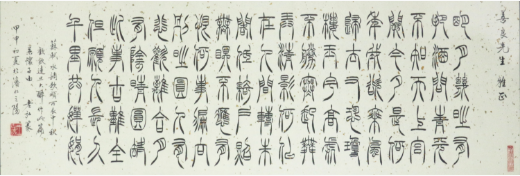 善良先生 雅正
明月幾時有
把酒問青天
不知天上宮
闕今夕是何
年我欲乘風
歸去又恐瓊
樓玉宇高處
不勝寒起舞
弄清影何似
在人間轉朱
閣低綺戶照
無眠不應有
恨何事長向
別時圓人有
悲歡離合月
有陰晴圓缺
此事古難全
但願人長久
千里共嬋娟
蘇軾水調歌頭丙辰中秋
歡飲達旦大醉作此篇
兼懷子由
甲申初夏於